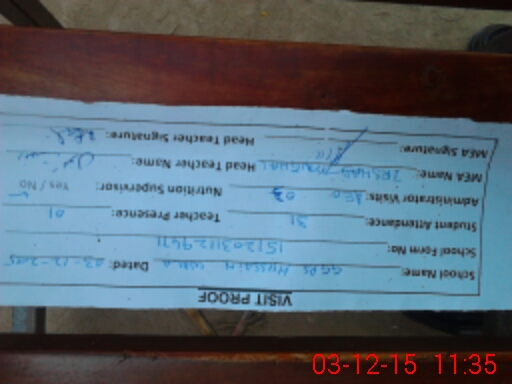 VISIT PROOF
School Name: GGPS HUSSAIN WALA Dated: 03-12-2015
School Form No:
Student Attendance: 31 Teacher Presence: 01
Administrator Visits: AEO 03 Nutrition Supervisor: Yes / No
MEA Name: IRSHAD Head Teacher Name:
MEA Signature: Head Teacher Signature:
03-12-15 11:35